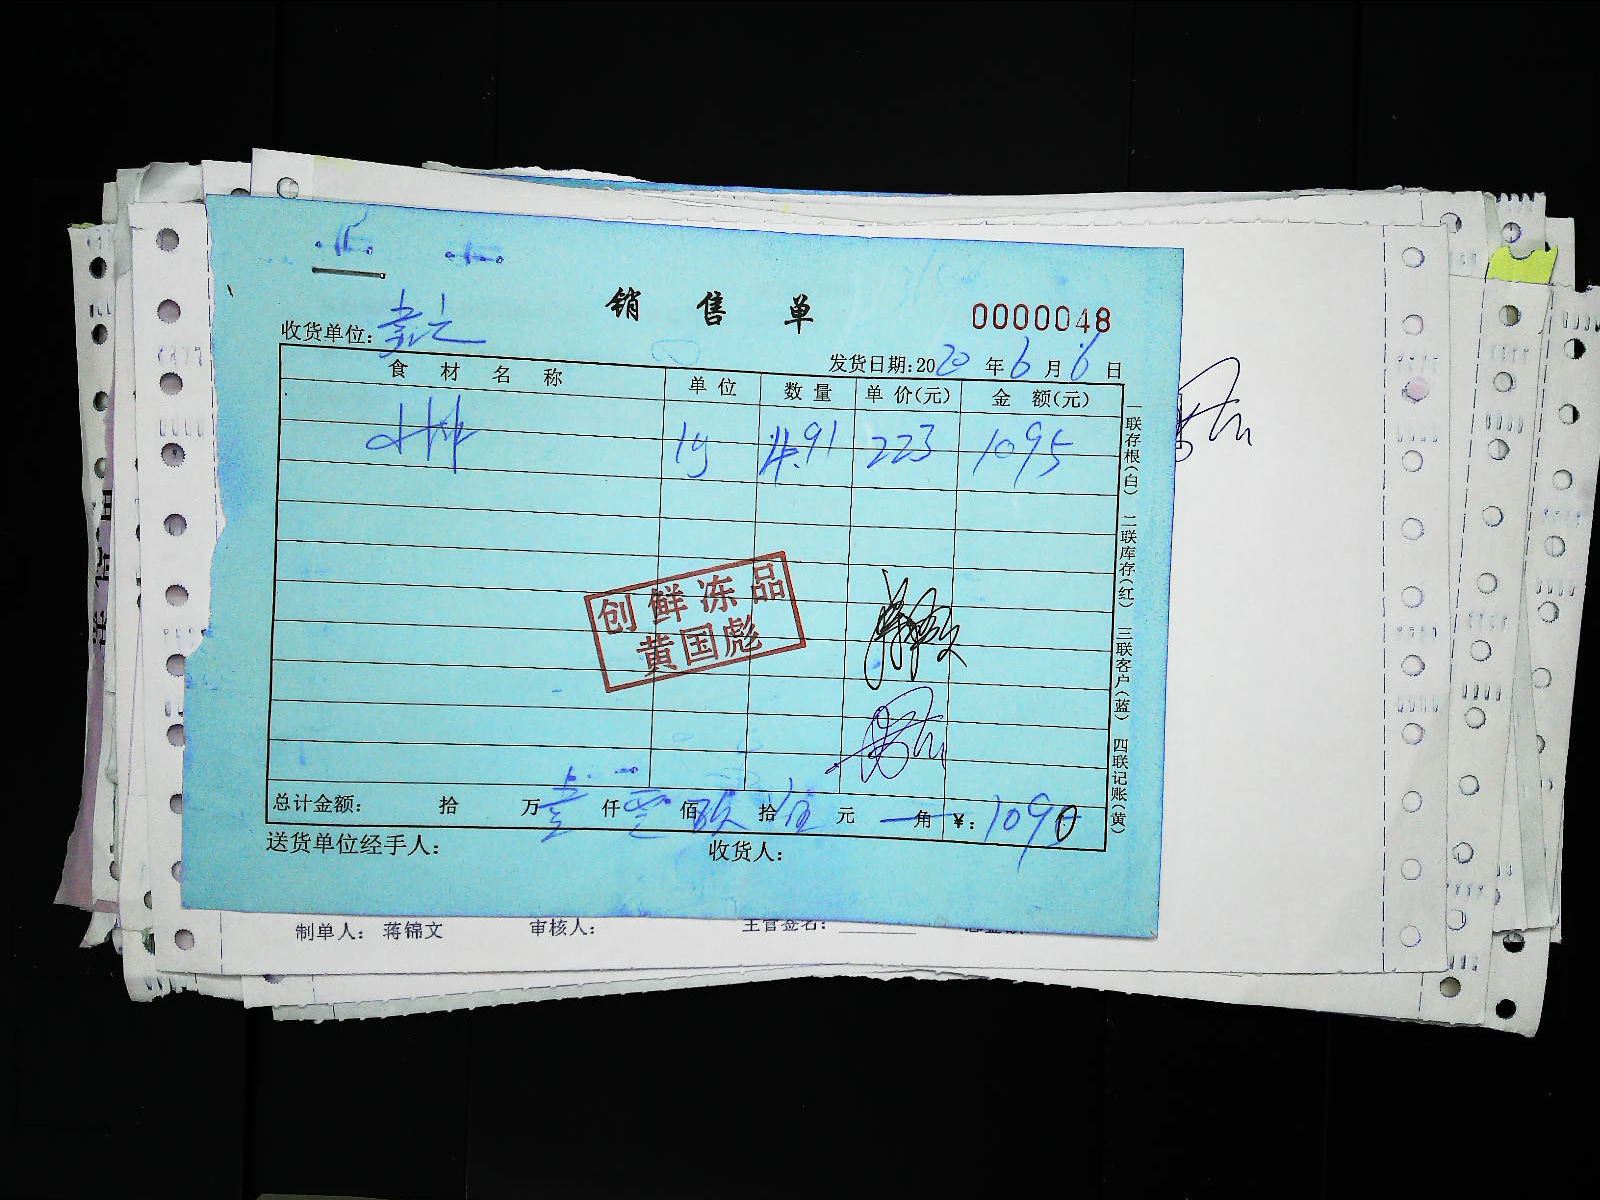 销售单
0000048
收货单位:
发货日期:2020年6月6日
食材名称 单位 数量 单价(元) 金额(元)
小排 4.91 223 1095
创鲜冻品
黄国彪
总计金额: 拾 万壹仟零佰玖拾伍元 角 ¥:1090
送货单位经手人: 收货人:
一联存根(白) 二联库存(红) 三联客户(蓝) 四联记账(黄)
制单人: 蒋锦文 审核人: 主管签名: